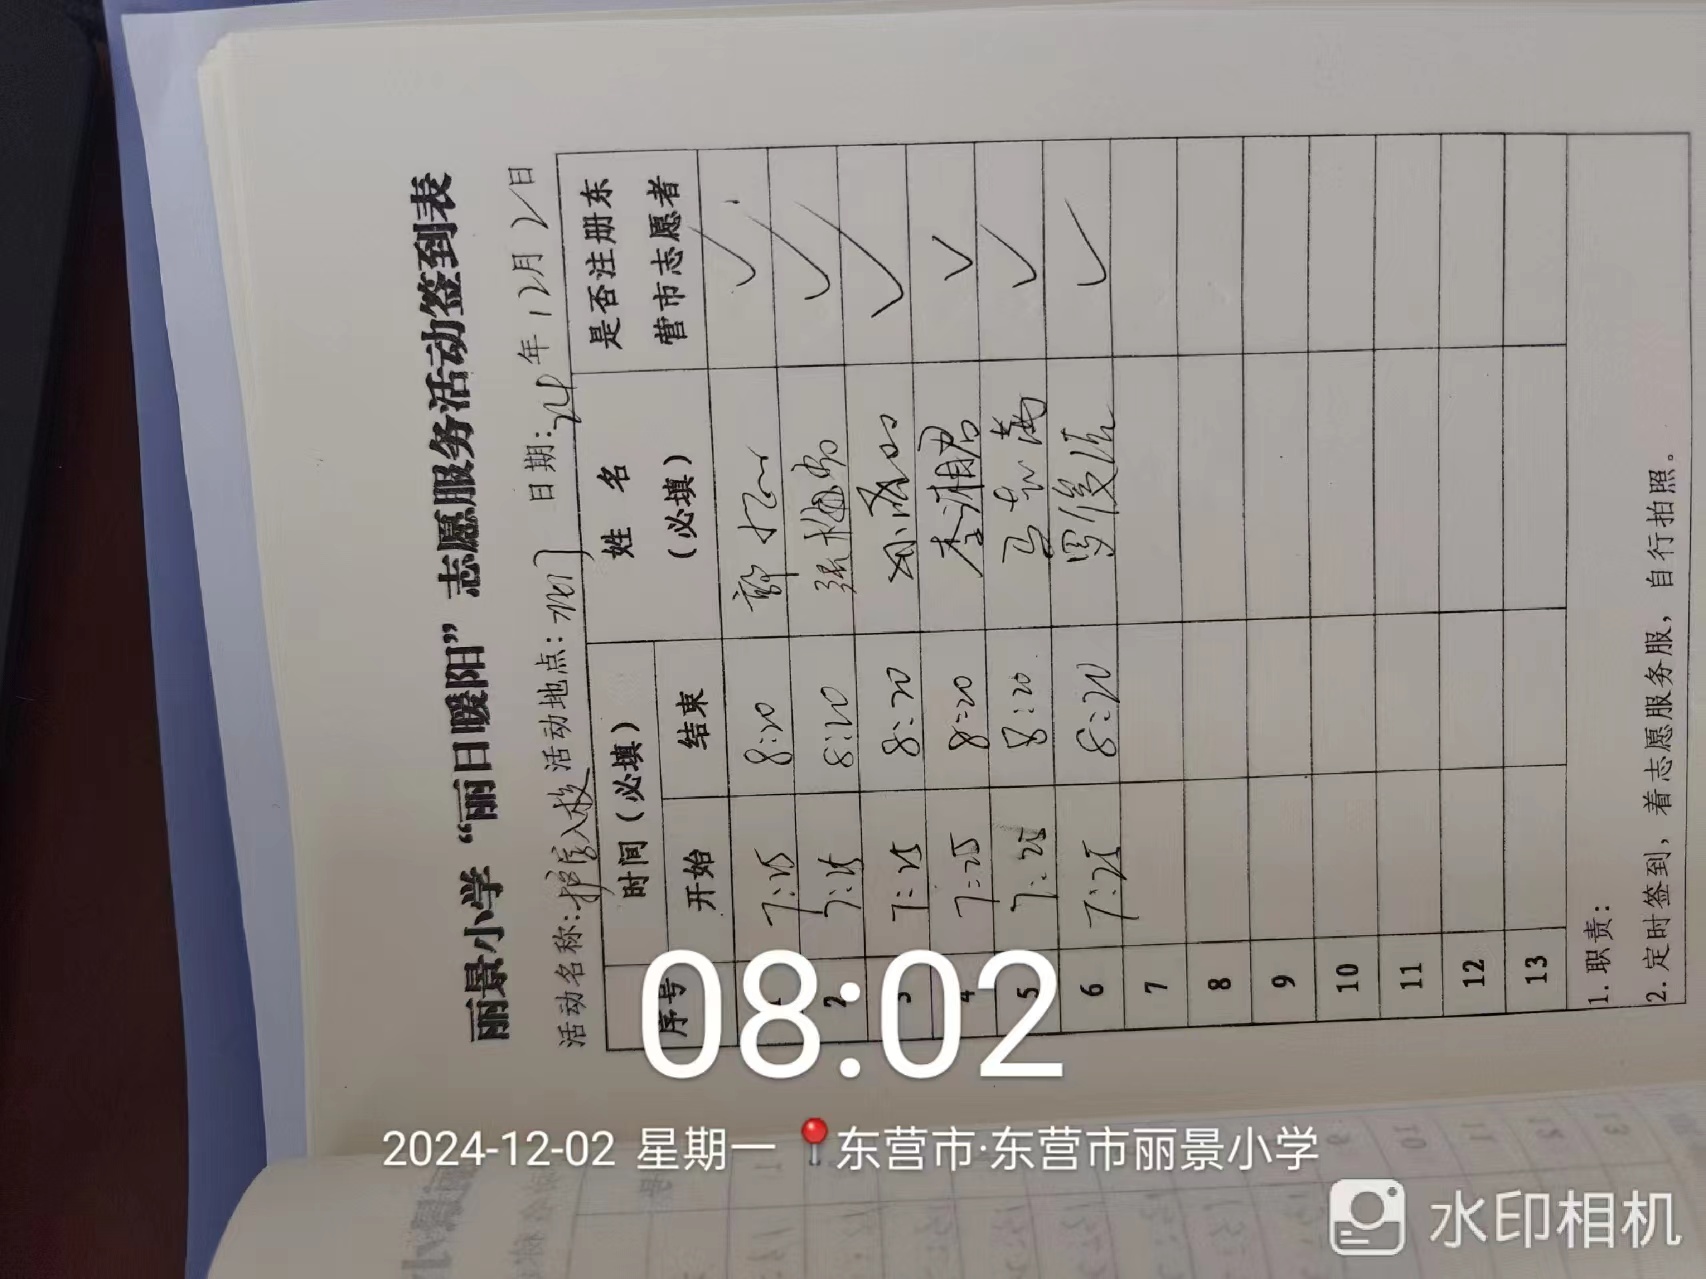 丽景小学“丽日暖阳”志愿服务活动签到表
活动名称:护学入校 活动地点: 日期:24年12月2日
序号 时间(必填) 姓名(必填) 是否注册东营市志愿者
开始 结束
1 7:25 8:20 郭 ✓
2 7:25 8:20 张梅 ✓
3 7:25 8:20 ✓
4 7:25 8:20 李湘君 ✓
5 7:25 8:20 马 ✓
6 7:25 8:20 罗俊 ✓
7
8
9
10
11
12
13
1.职责:
2.定时签到,着志愿服务服,自行拍照。
08:02
2024-12-02 星期一 东营市·东营市丽景小学
水印相机